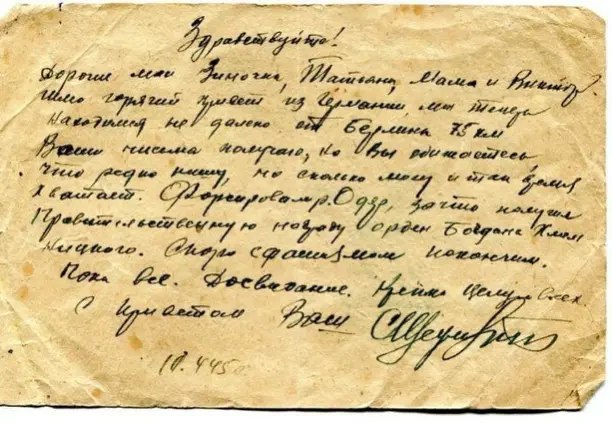 Здравствуйте!
Дорогие мои Зиночка, Татьяна, Мама и Виктор
шлю горячий привет из Германии мы теперь
находимся не далеко от Берлина 75 км
Ваши письма получаю, но Вы обижаетесь
что редко пишу, но сколько могу и так время
хватает. Форсировали р. Одер, за что получил
Правительственную награду орден Богдана Хмель
ницкого. Скоро с фашизмом покончим.
Пока все. Досвидание. Крепко целую всех.
С приветом Ваш